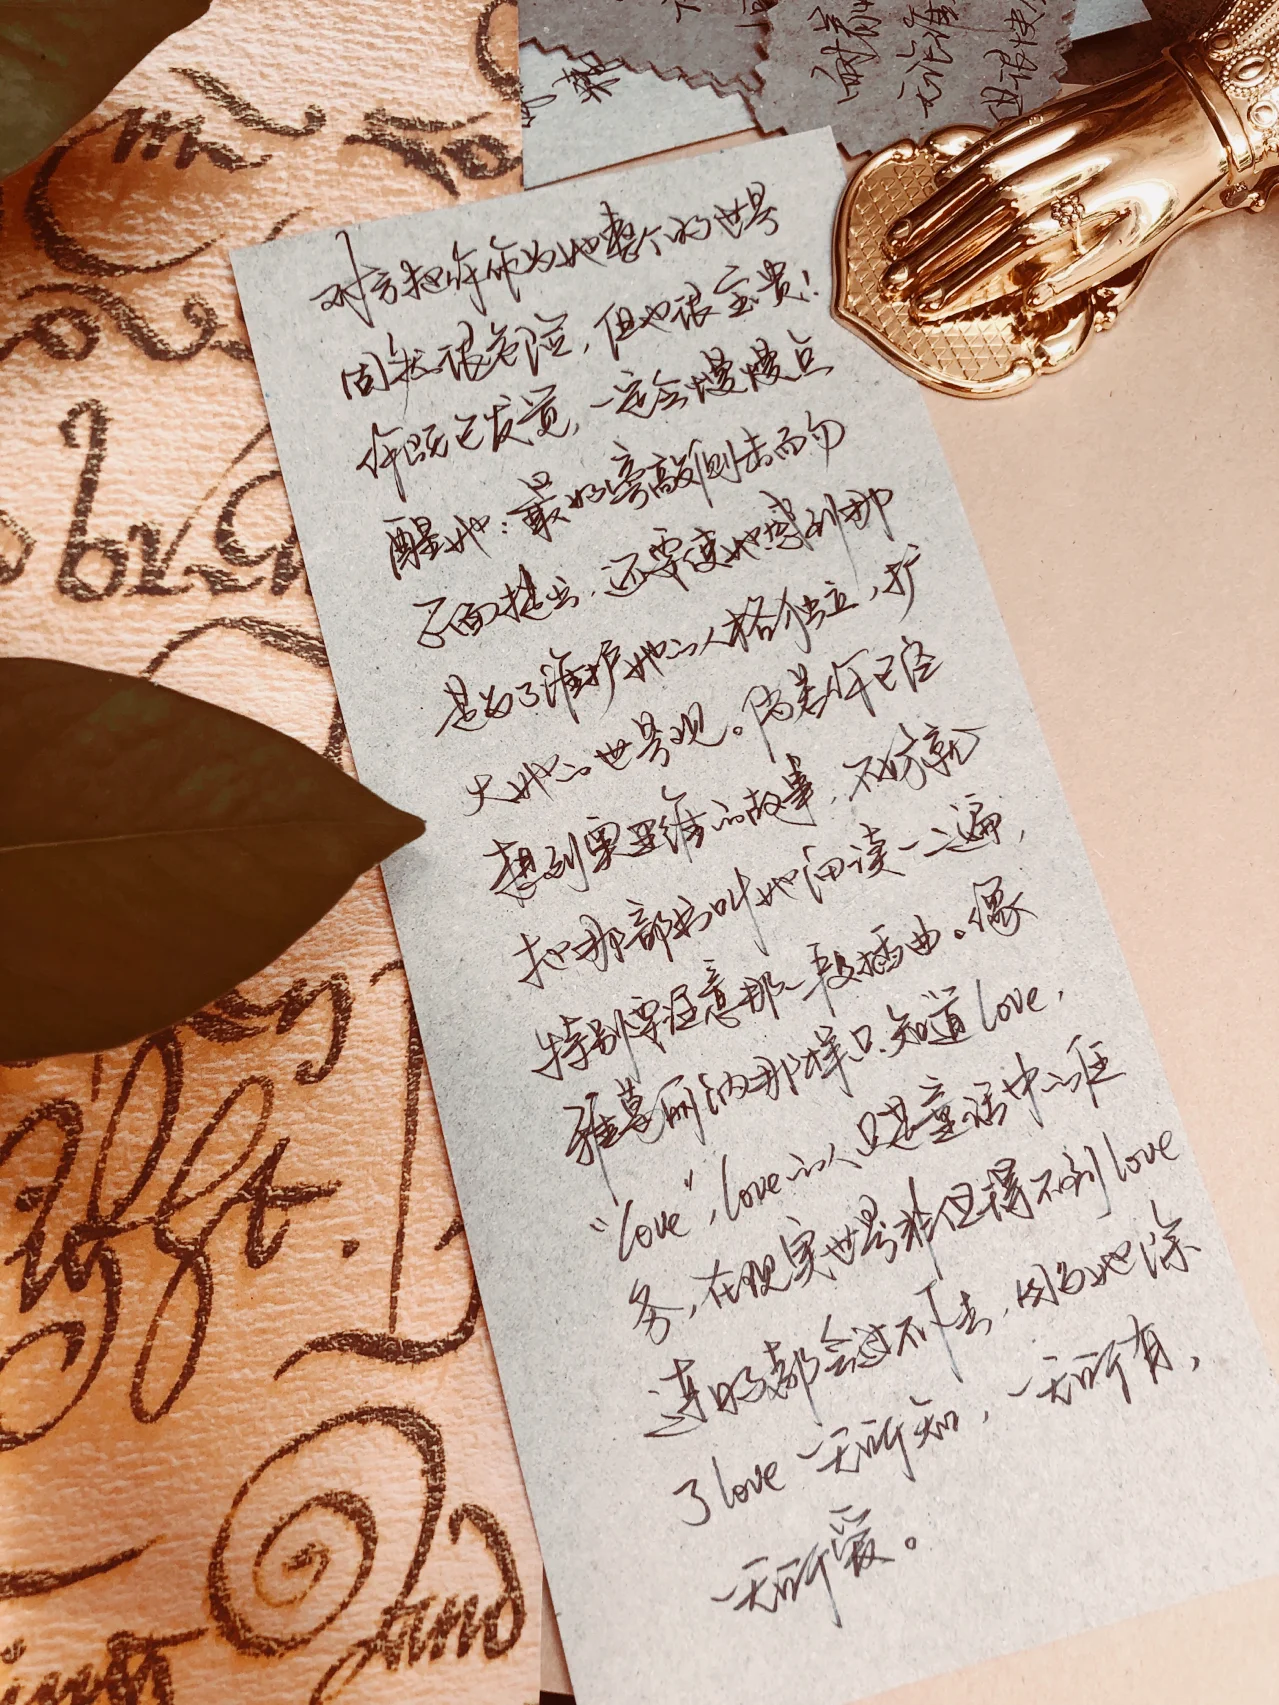 对方把你作为她整个的世界
固然很危险，但也很宝贵！
你既已发觉，一定会慢慢点
醒她：最好旁敲侧击而勿
正面提出，还要使她感到那
是为了维护她的人格独立，扩
大她的世界观。倘若你已经
想到奥里维的故事，不妨就
把那部书叫她细读一二遍，
特别要注意那一段插曲。像
雅葛丽纳那样只知道love,
“love”, love的人只是童话中的人
物，在现实世界非但得不到love
连日子都会过不下去，因为她除
了love一无所知，一无所有，
一无所爱。